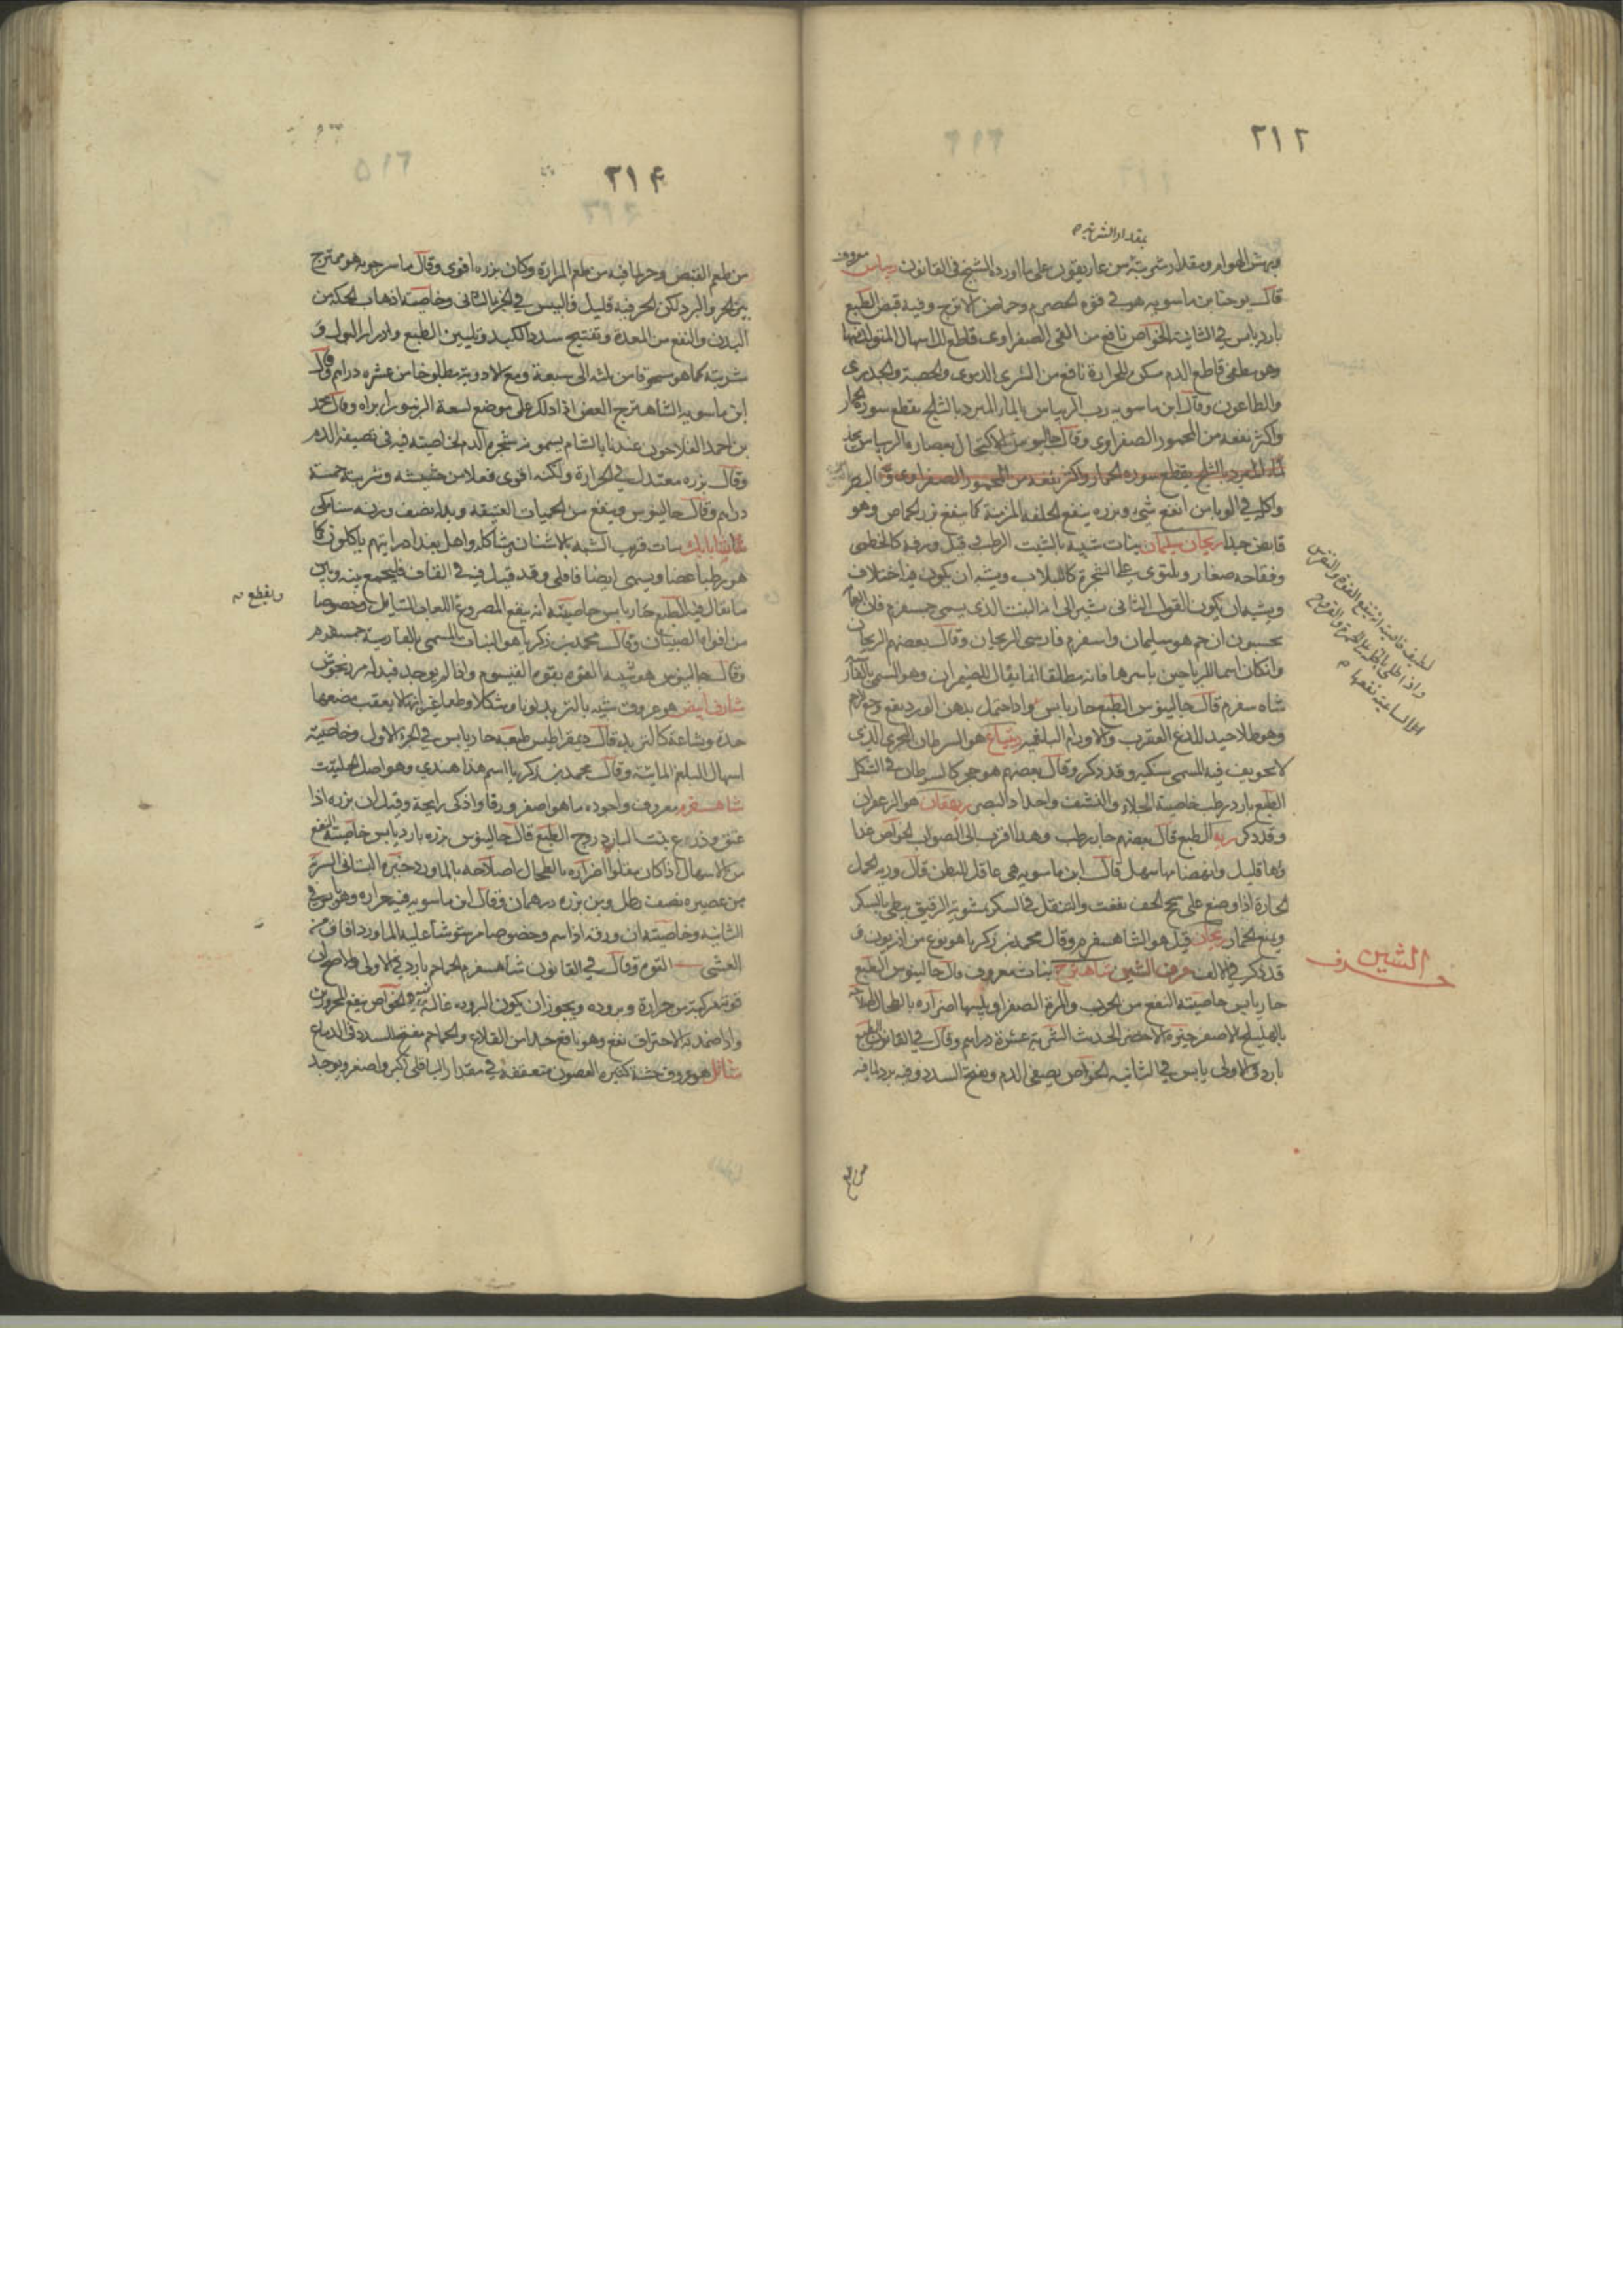 ٢١٢
بمقدار الشربة
ونهش الهوام ومقدار شربته من غاريقون على ما اورده الشيخ في القانون ريباس معروف
قال يوحنا بن ماسويه هو في قوة الحصرم وحماض الاترج وفيه قبض الطبع
بارد يابس في الثانية الخواص نافع من القي الصفراوي قاطع للاسهال المتولد منها
وهو مطفي قاطع الدم مسكن للحرارة نافع من الشري الدموي والحصبة والجدري
والطاعون وقال ابن ماسويه رب الريباس بالماء المبرد بالثلج يقطع سورة الخمار
واكثر نفعه من المحمور الصفراوي وقال جالينوس الاكتحال بعصارة الريباس يحد
المبرد بالثلج يقطع سورة الخمار واكثر نفعه من المحمور الصفراوي البصر
واكله في الوباء من انفع شي وبزره ينفع الخلفة المزمنة كما ينفع بزر الحماض وهو
قابض جدا ريحان سليمان نبات شبيه بالشبت الرطب قيل ورقه كالخطمي
وفقاحه صغار ويلتوي على الشجرة كاللبلاب ويشبه ان يكون فيه اختلاف
ويشبه ان يكون القول الثاني يشير الى انه النبت الذي يسمى جمسفرم فان
يحسبون ان جم هو سليمان واسفرم فارسي الريحان وقال بعضهم الريحان
وان كان اسما للرياحين باسرها فانه مطلقا انما يقال للضيمران وهو المسمى
شاه سفرم قال جالينوس الطبع حار يابس واذا احتمل بدهن الورد نفع وجع الرحم
وهو طلا جيد للدغ العقرب والاورام البلغمية هو السرطان البحري الذي
لا تجويف فيه المسمى وقد ذكر وقال بعضهم هو حجر كالسرطان في الشكل
الطبع بارد رطب خاصيته الجلا والنشف واحداد البصر ريهقان هو الزعفران
وقد ذكر ريه الطبع قال بعضهم حار رطب وهذا اقرب الى الصواب الخواص غذا
ؤها قليل وانهضامها سهل قال ابن ماسويه هي عاقل للبطن قال وريه الحمل
الحارة اذا وضع على سحج الخف نفعت والتنقل في السكر بشويه الرقيق يبطي بالسكر
ويمنع الخمار ريحان قيل هو الشاهسفرم وقال محمد بن زكريا هو نوع من اذريون و
قد ذكر في الالف حرف الشين شاهترج نبات معروف قال جالينوس الطبع
حار يابس خاصيته النفع من الجرب والمرة الصفرا ويليها اضراره بالطحال اصلاحه
بالهليلج الاصفر خيره الاخضر الحديث الشربة عشرة دراهم وقال في القانون الطبع
بارد في الاولى يابس في الثانيه الخواص يصفي الدم ويفتح السدد وفيه برد لما فيه
لطيف خاصيته ان ينفع اللقوة والنقرس
واذا طلي بالخل على الحمرة والقروح
الساعية نفعها
الشين
حرف
من طعم
٢١۴
من طعم القبض وحر لما فيه من طعم المرارة وكان بزره اقوى وقال ماسرجويه هو ممتزج
بين الحر والبرد لكن الحر فيه قليل واليبس في الجزء الثاني وخاصيته اذهاب الحكه من
البدن والنفع من المعدة وتفتيح سدد الكبد وتليين الطبع وادرار البول و
شربته كما هو مسحوقا من ثلثه الى سبعة ومع الادوية مطبوخا من عشرة دراهم وقال
ابن ماسويه الشاهترج الغض اذا دلك على موضع لسعة الزنبور ابراه وقال محمد
بن احمد الفلاحون عندنا بالشام يسمونه شجرة الدم لخاصيته فيه في تصفية الدم
وقال بزره معتدل في الحرارة ولكنه اقوى فعلا من حشيشه وشربته خمسة
دراهم وقال جالينوس وينفع من الحميات العتيقة وبدله نصف وزنه سنا مكي
شابابك نبات قريب الشبه بالاشنان مشاكله واهل بغداد رايتهم ياكلونه كما
هو رطبا غضا ويسمى ايضا قاقلى وقد قيل فيه في القاف فليجمع بينه وبين
ما يقال فيه الطبع حار يابس خاصيته انه ينفع المصروع اللعاب السايل وخصوصا
ويقطع
من افواه الصبيان وقال محمد بن زكريا هو النبات المسمى بالفارسية
وقال جالينوس هو شبيه القوة بقوة القيسوم واذا لم يوجد فبدله مرزنجوش
شارف ابيض هو عروق شبيه بالتربد لونا وشكلا وطعما غير انها لا يعقب مضغها
حدة وبشاعة كالتربد قال ديمقراطيس طبعه حار يابس في الجزء الاول وخاصيته
اسهال البلغم المايية وقال محمد بن زكريا اسم هذا هندي وهو اصل الحلتيت
شاهسفرم معروف واجوده ما هو اصغر ورقا واذكى رايحة وقيل ان بزره اذا
عتق وزرع نبت الباذروج الطبع قال جالينوس بزره بارد يابس خاصيته النفع
من الاسهال اذا كان مقلوا اضراره بالطحال اصلاحه بالماورد خيره البستاني الشربة
من عصيره نصف رطل ومن بزره درهمان وقال ابن ماسويه فيه حراره وهو يابس في
الثانيه وخاصيته ان ورقه اذا شم وخصوصا مرشوشا عليه الماورد افاق من
الغشي النوم وقال في القانون شاهسفرم الحماحم بارد في الاولى والاصح ان
قوته مركبة من حرارة وبروده ويجوز ان يكون البروده غالبة فيه الخواص ينفع المحرورين
واذا ضمد به الاحتراق نفع وهو نافع جدا من القلاع والحماحم مفتح للسدد في الدماغ
شاتل هو عروق خشبة كثيرة الغصون متعقفة في مقدار الباقلى اكبر واصغر ويوجد